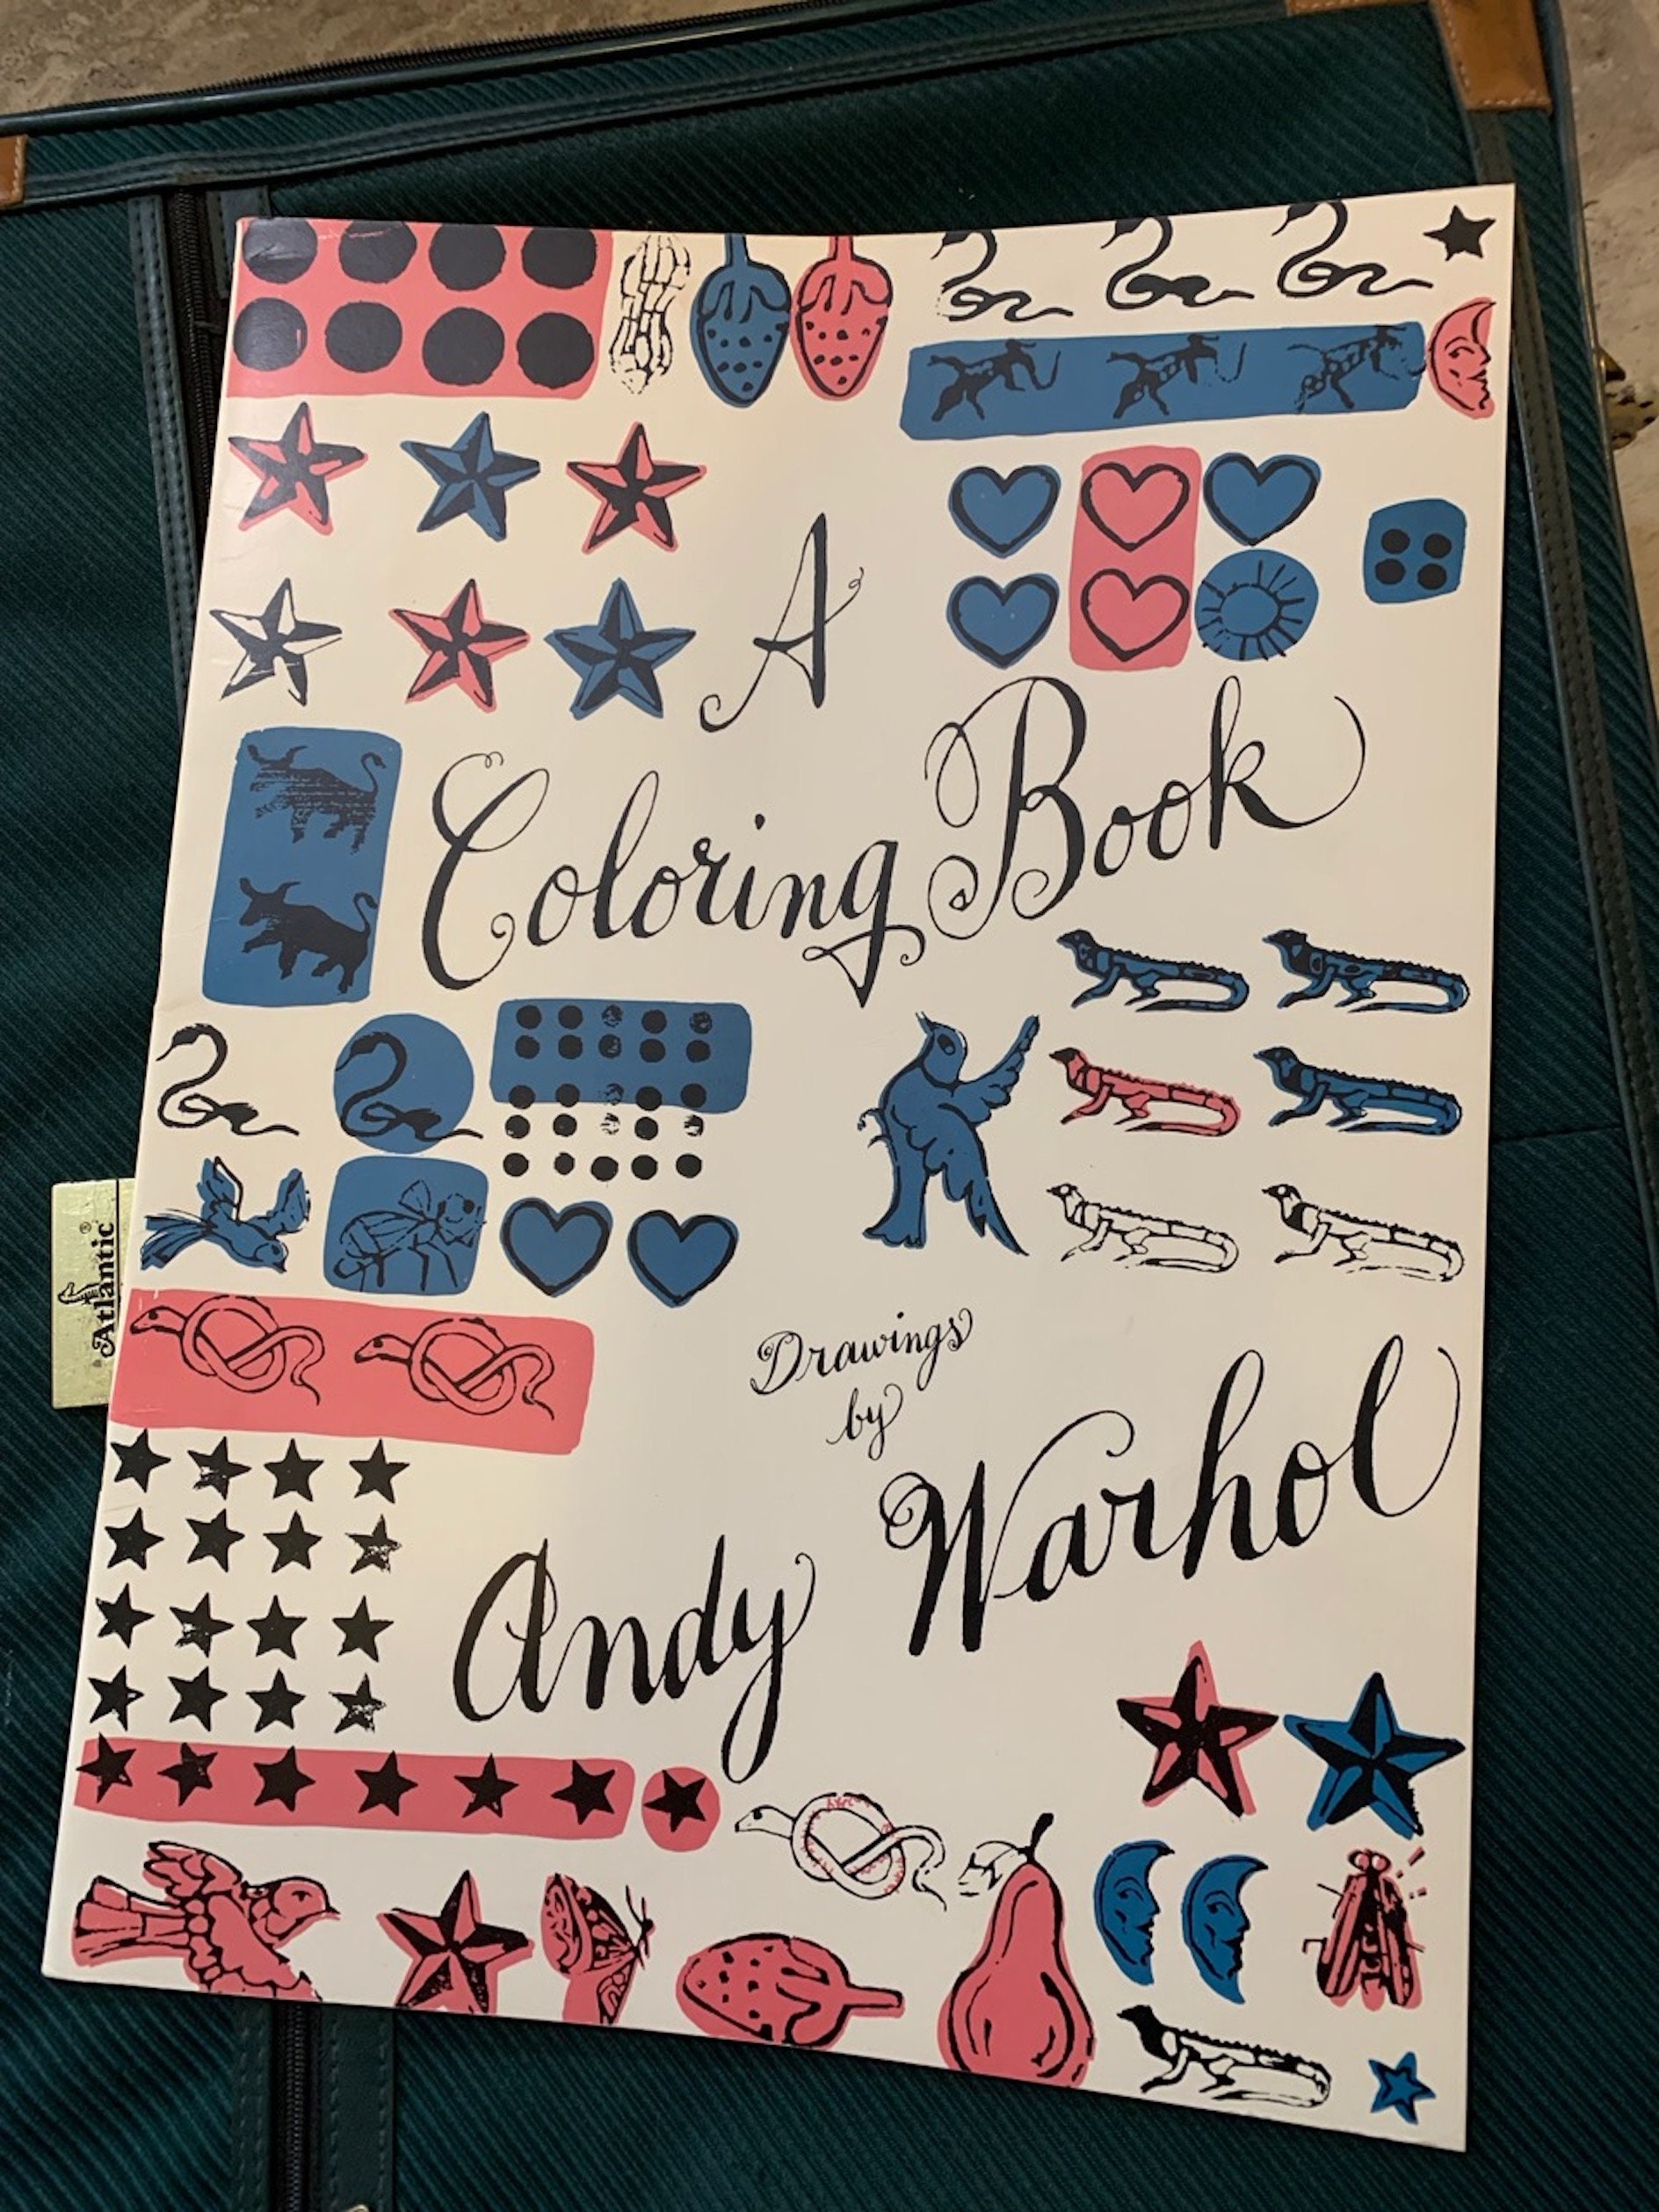 A
Coloring Book
Drawings
by
Andy Warhol
Atlantic®